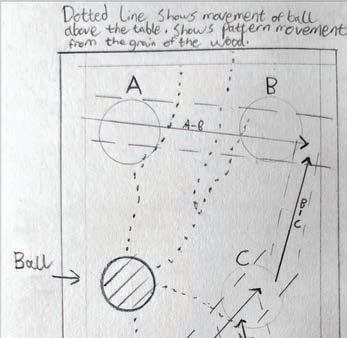 Dotted Line shows movement of ball
above the table, shows pattern movement
from the grain of the wood.
A
B
A-B
B-C
Ball
C